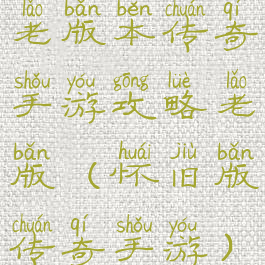 lǎo bǎn běn chuán qí
老版本传奇
shǒu yóu gōng luè lǎo
手游攻略老
bǎn huái jiù bǎn
版（怀旧版
chuán qí shǒu yóu
传奇手游）